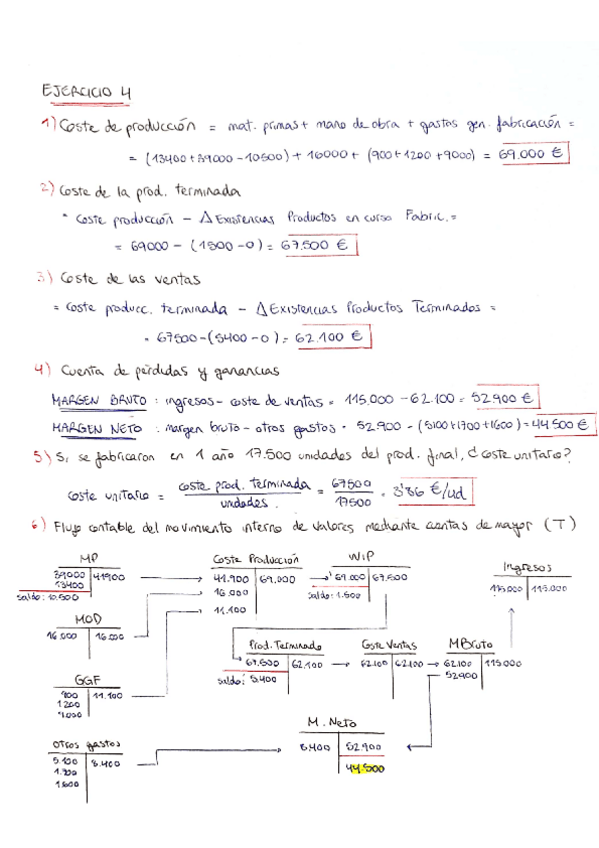 EJERCICIO 4
1) Coste de producción = mat. primas + mano de obra + gastos gen. fabricación =
= (13400 + 39000 - 10500) + 16000 + (900 + 1200 + 9000) = 69.000 €
2) Coste de la prod. terminada
* Coste producción - Δ Existencias Productos en curso Fabric. =
= 69000 - (1500 - 0) = 67.500 €
3) Coste de las ventas
= Coste producc. terminada - Δ Existencias Productos Terminados =
= 67500 - (5400 - 0) = 62.100 €
4) Cuenta de pérdidas y ganancias
MARGEN BRUTO: ingresos - coste de ventas = 115.000 - 62.100 = 52.900 €
MARGEN NETO: margen bruto - otros gastos = 52.900 - (5100 + 1700 + 1600) = 44.500 €
5) Si se fabricaron en 1 año 17.500 unidades del prod. final, ¿Coste unitario?
coste unitario = coste prod. terminada / unidades. = 67500 / 17500 = 3'86 €/ud
6) Flujo contable del movimiento interno de valores mediante cuentas de mayor (T)
MP
39000 41900
13400
saldo: 10.500
MOD
16.000 16.000
GGF
900 11.100
1200
9.000
Otros gastos
5.100 8.400
1.600
Coste Producción
41.900 69.000
16.000
11.100
WIP
69.000 67.500
saldo: 1.500
Prod. Terminado
67.500 62.100
saldo: 5.400
Coste Ventas
62.100 62.100
MBruto
62.100 115.000
52900
Ingresos
115.000 115.000
M. Neto
8.400 52.900
44.500